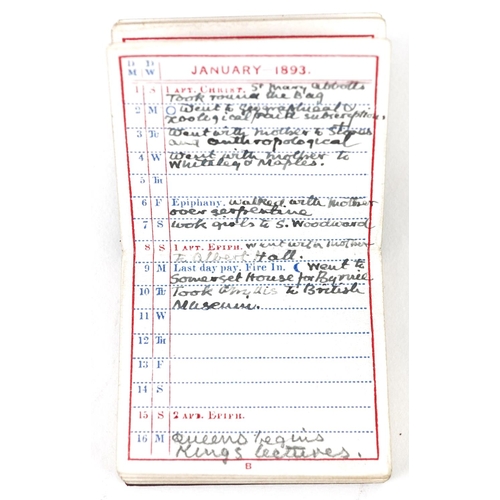 D M D W JANUARY 1893.
1 S 1 AFT. CHRIST. St Mary Abbotts
Took round the Bag
2 M Went to Geographical &
Zoological paid subscription.
3 Tu Went with mother to Stores
and anthropological
4 W Went with mother to
Whiteleys Maples.
5 Th
6 F Epiphany. walked with mother
over serpentine
7 S took girls to S. Woodward
8 S 1 AFT. EPIPH. went with mother
to Albert Hall.
9 M Last day pay. Fire In. Went to
Somerset House for Byrne
10 Tu Took to British
Museum.
11 W
12 Th
13 F
14 S
15 S 2 AFT. EPIPH.
16 M Queens begins
Kings lectures.
B